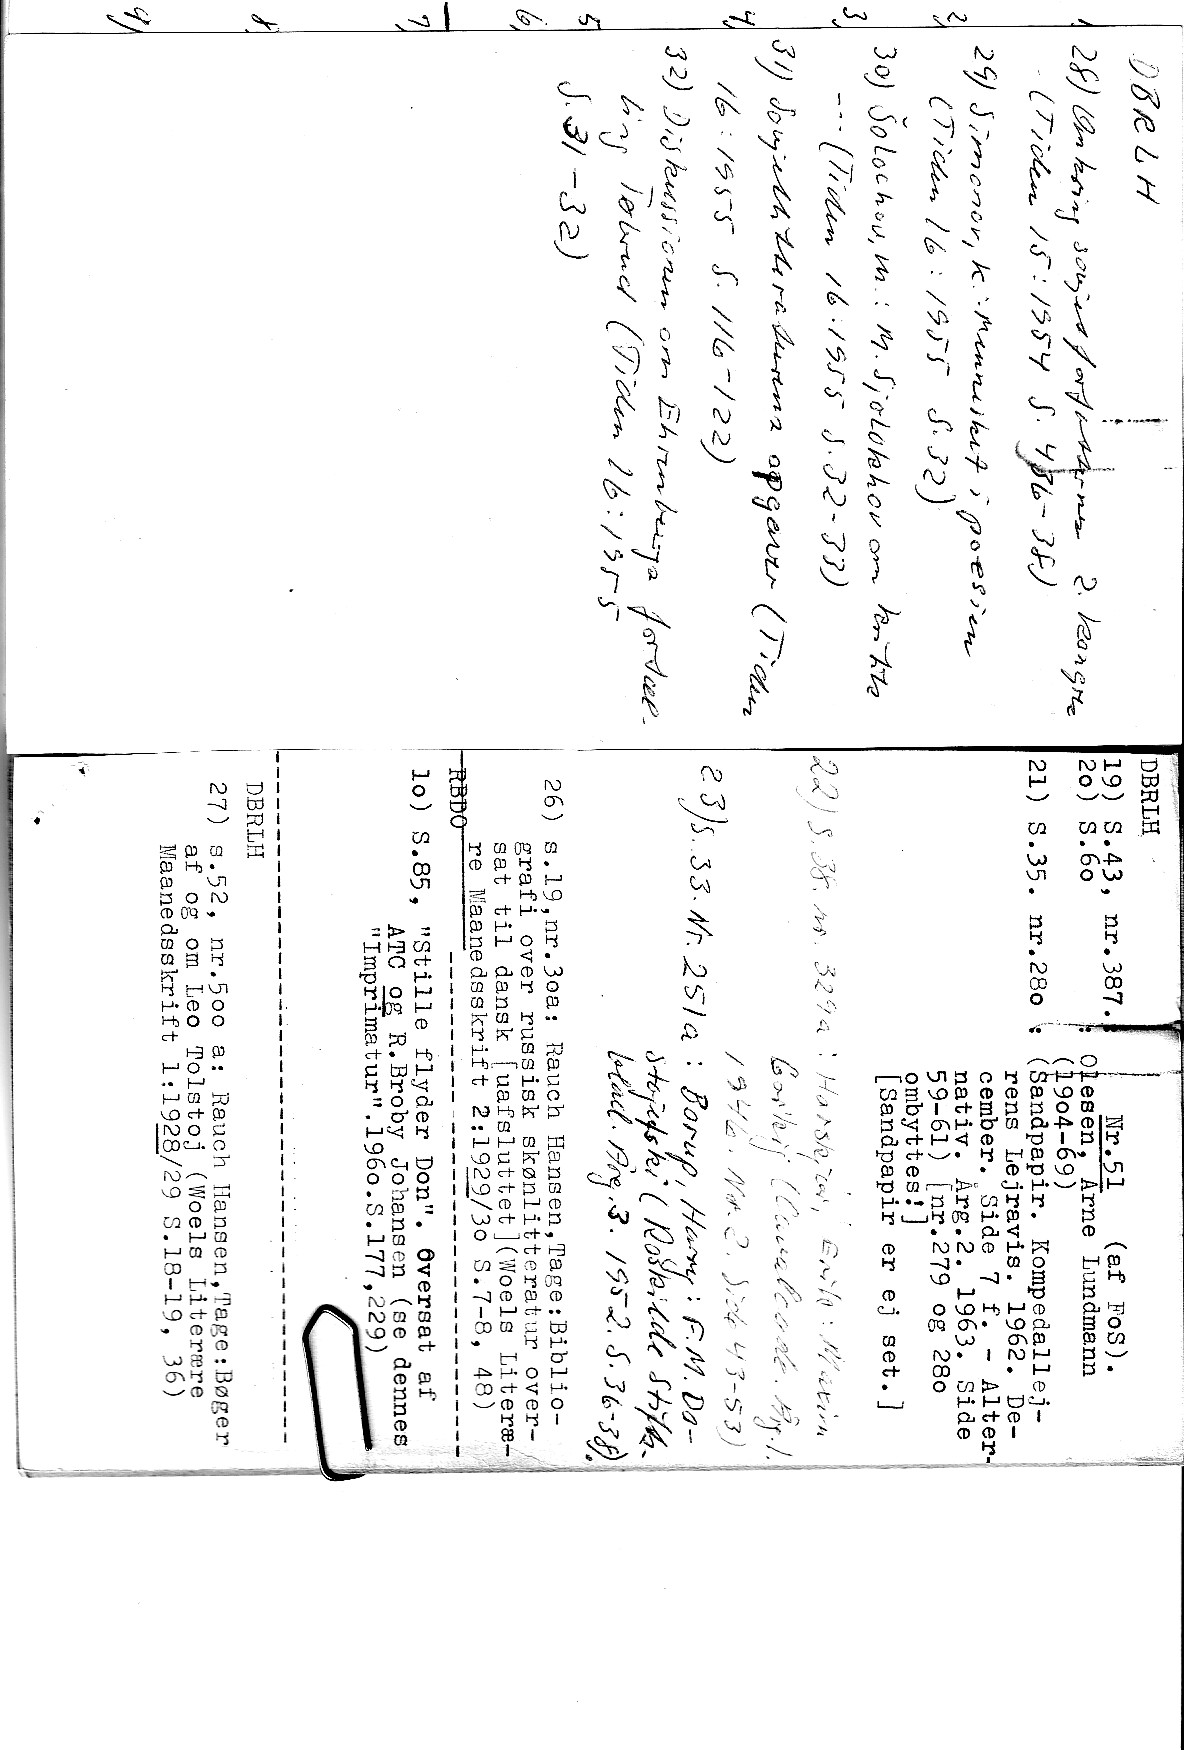 1
2,
3,
4,
5
6,
7,
8,
9,
DBRLH
28) Omkring sovjetforfatternes 2. kongres
(Tiden 15:1954 S. 436-38)
29) Simonov, K.: Mennesket i poesien
(Tiden 16:1955 S.32)
30) Šolochov, M.: M. Sjolokhov om kritik
--- (Tiden 16:1955 S.32-33)
31) Sovjetlitteraturens opgaver (Tiden
16:1955 S.116-122)
32) Diskussionen om Ehrenburgs fortæl-
ling Tøbrud (Tiden 16:1955
S.31-32)
DBRLH
19) S.43, nr.387.: Nr.51 (af FoS).
2o) S.6o : Olesen, Arne Lundmann
(19o4-69)
21) S.35. nr.28o : (Sandpapir. Kompedallej-
rens Lejravis. 1962. De-
cember. Side 7 f. - Alter-
nativ. Årg.2. 1963. Side
59-61) [nr.279 og 28o
ombyttes!]
[Sandpapir er ej set.]
22) S.38. nr. 329a: Horskjær, Erik: Maxim
Gorkij (Cavalcade. Årg.1.
1946. Nr.2. Side 43-53)
23) S.33. Nr.251a: Borup, Harry: F.M. Do-
stojefski (Roskilde Stifts-
blad. Årg.3. 1952. S.36-38).
26) s.19,nr.3oa: Rauch Hansen,Tage:Biblio-
grafi over russisk skønlitteratur over-
sat til dansk [uafsluttet](Woels Literæ-
re Maanedsskrift 2:1929/3o S.7-8, 48)
RBDO
1o) S.85, "Stille flyder Don". Oversat af
ATC og R.Broby Johansen (se dennes
"Imprimatur".196o.S.177,229)
DBRLH
27) s.52, nr.5oo a: Rauch Hansen,Tage:Bøger
af og om Leo Tolstoj (Woels Literære
Maanedsskrift 1:1928/29 S.18-19, 36)